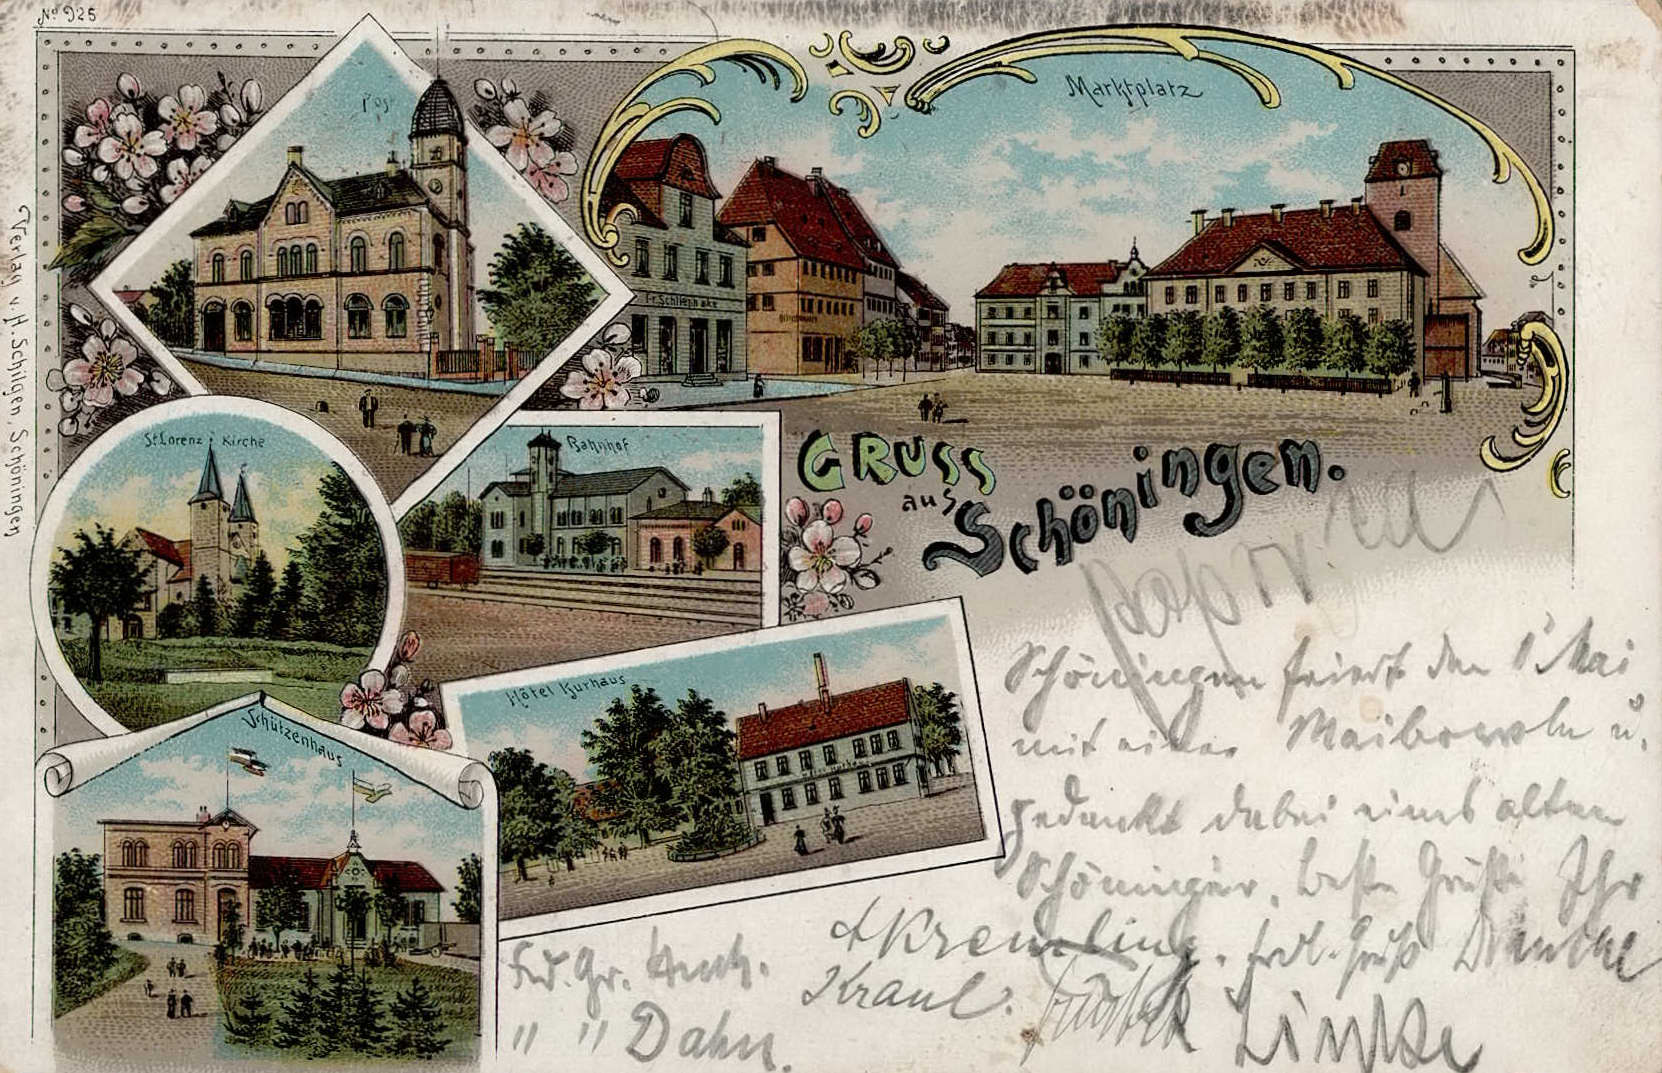 No 925
Post
Marktplatz
Fr. Schliephake
St. Lorenz Kirche
Bahnhof
GRUSS
aus
Schöningen.
Hôtel Kurhaus
Schützenhaus
Verlag v. H. Schilgen, Schöningen
Schöningen feiert den 1. Mai
mit einer Maibowle u.
gedenkt dabei eines alten
Schöninger. Beste Grüße Ihr
Kremling. Frdl. Gruß
Frd. Gr.
Kraul.
" " Dahn.
Linke